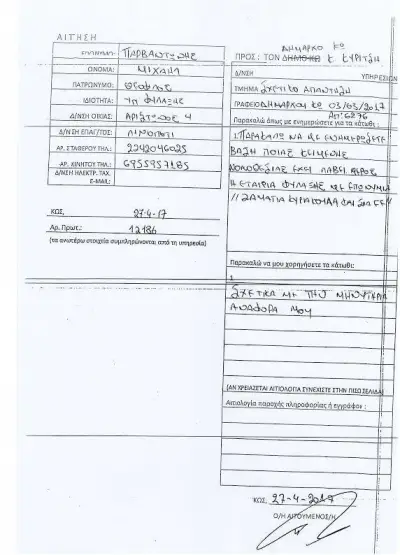 ΑΙΤΗΣΗ
ΕΠΩΝΥΜΟ: ΠΑΡΒΑΝΤΩΝΗΣ
ΟΝΟΜΑ: ΜΙΧΑΗΛ
ΠΑΤΡΩΝΥΜΟ:
ΙΔΙΟΤΗΤΑ:
Δ/ΝΣΗ ΟΙΚΙΑΣ: 4
Δ/ΝΣΗ ΕΠΑΓΓ/ΤΟΣ:
ΑΡ. ΣΤΑΘΕΡΟΥ ΤΗΛ.: 2242046025
ΑΡ. ΚΙΝΗΤΟΥ ΤΗΛ.: 6955957185
Δ/ΝΣΗ ΗΛΕΚΤΡ. ΤΑΧ.
E-MAIL:
ΚΩΣ, 27-4-17
Αρ. Πρωτ.: 12186
(τα ανωτέρω στοιχεία συμπληρώνονται από τη υπηρεσία)
ΔΗΜΑΡΧΟ ΚΩ
ΠΡΟΣ: ΤΟΝ ΔΗΜΟ ΚΩ Κ ΚΥΡΙΤΣΗ
Δ/ΝΣΗ ΥΠΗΡΕΣΙΩΝ
ΤΜΗΜΑ ΣΧΕΤΙΚΟ
ΓΡΑΦΕΙΟ ΔΗΜΑΡΧΟΥ ΚΩ 03/03/2017
6276
Παρακαλώ όπως με ενημερώσετε για τα κάτωθι:
1. ΠΑΡΑΚΑΛΩ ΝΑ ΜΕ ΕΝΗΜΕΡΩΣΕΤΕ
ΒΑΣΗ ΠΟΙΑΣ ΚΕΙΜΕΝΗΣ
ΝΟΜΟΘΕΣΙΑΣ ΕΧΕΙ ΛΑΒΕΙ ΜΕΡΟΣ
Η ΕΤΑΙΡΙΑ ΦΥΛΑΞΗΣ ΜΕ ΕΠΩΝΥΜΙΑ
Παρακαλώ να μου χορηγήσετε τα κάτωθι:
ΣΧΕΤΙΚΑ ΜΕ ΤΗΝ ΜΗΝΥΤΗΡΙΑ
ΑΝΑΦΟΡΑ ΜΟΥ
(ΑΝ ΧΡΕΙΑΖΕΤΑΙ ΑΙΤΙΟΛΟΓΙΑ ΣΥΝΕΧΙΣΤΕ ΣΤΗΝ ΠΙΣΩ ΣΕΛΙΔΑ)
Αιτιολογία παροχής πληροφορίας ή εγγράφου :
ΚΩΣ, 27-4-2017
Ο/Η ΑΙΤΟΥΜΕΝΟΣ/Η